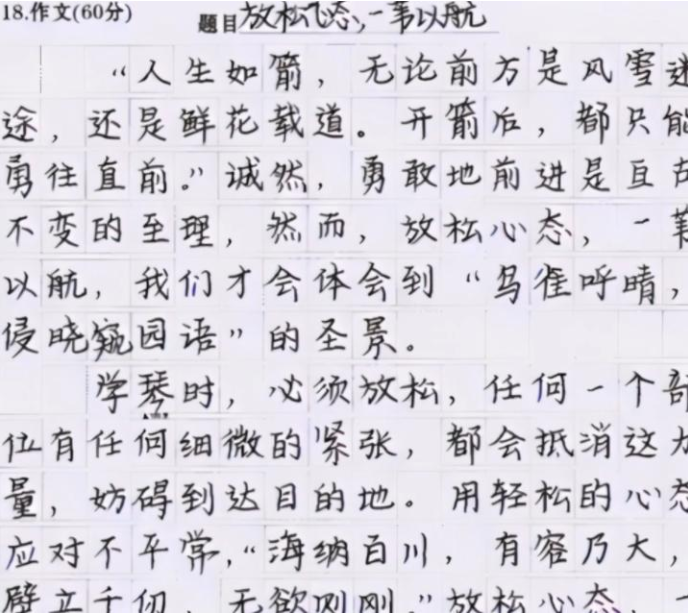 18.作文(60分) 题目 放松心态,一苇以航
"人生如箭，无论前方是风雪迷
途，还是鲜花载道。开箭后，都只能
勇往直前。"诚然，勇敢地前进是亘古
不变的至理，然而，放松心态，一苇
以航，我们才会体会到"鸟雀呼晴，
侵晓窥园语"的圣景。
学琴时，必须放松，任何一个部
位有任何细微的紧张，都会抵消这力
量，妨碍到达目的地。用轻松的心态
应对不平常，"海纳百川，有容乃大，
壁立千仞，无欲则刚。"放松心态，一